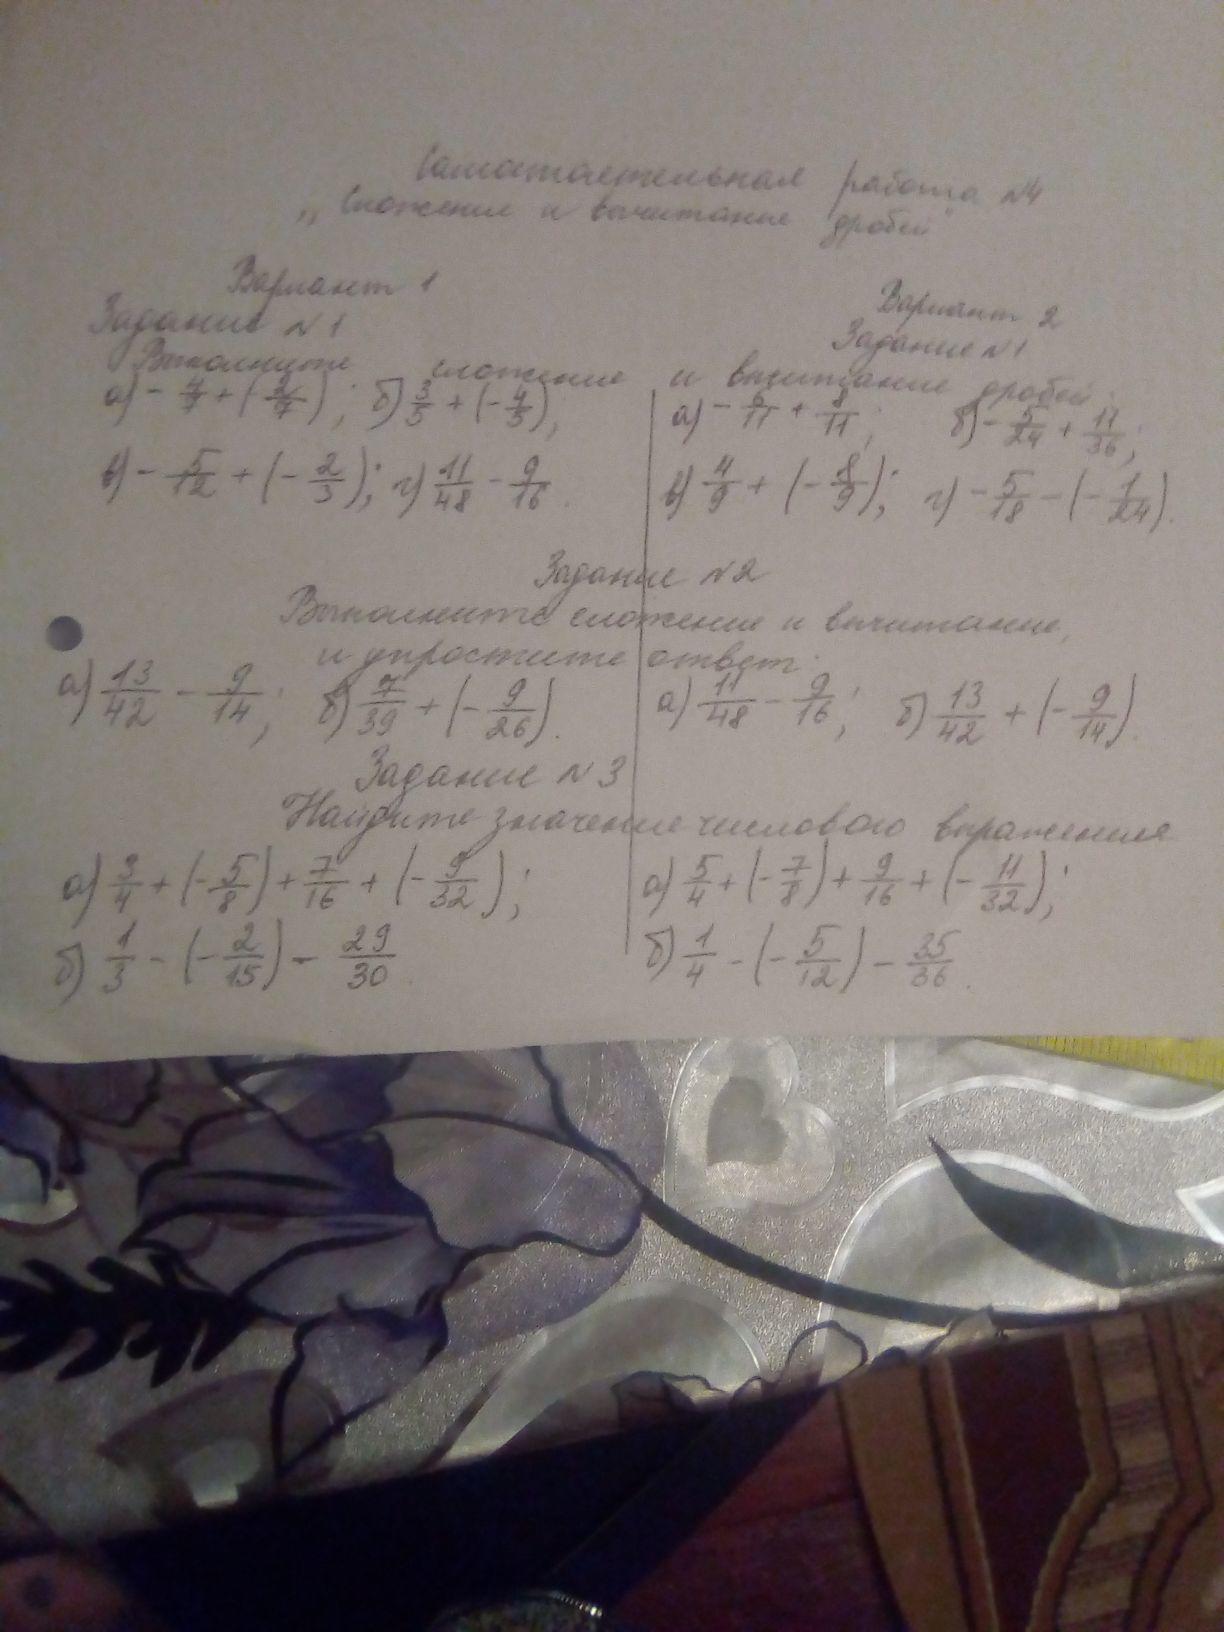 Самостоятельная работа №4
„Сложение и вычитание дробей"
Вариант 1
Вариант 2
Задание №1
Задание №1
Выполните сложение и вычитание дробей:
а) - 4/7 + (2/7); б) 3/5 + (-4/5);
в) - 5/12 + (-2/3); г) 11/48 - 9/16.
а) - 6/11 + 8/11; б) - 5/24 + 11/36;
в) 4/9 + (-8/9); г) - 5/18 - (-1/24).
Задание №2
Выполните сложение и вычитание,
и упростите ответ.
а) 13/42 - 9/14; б) 7/39 + (-9/26).
а) 11/48 - 9/16; б) 13/42 + (-9/14).
Задание №3
Найдите значение числового выражения
а) 3/4 + (-5/8) + 7/16 + (-9/32);
б) 1/3 - (-2/15) - 29/30.
а) 5/4 + (-7/8) + 9/16 + (-11/32);
б) 1/4 - (-5/12) - 35/36.